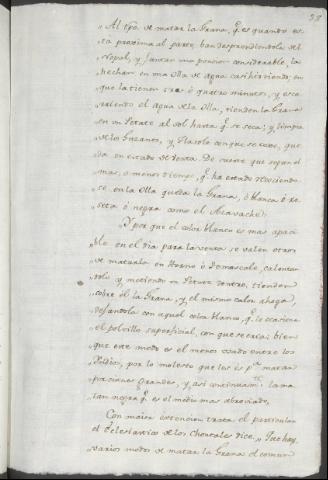 "Al tpo. de matar la Grana, q.e es quando es-
"tá proxima al parto, ban desprendiendola del
"Nopal, y juntar una porcion considerable, la
"hechan en una olla de agua casi hirviendo, en
"que la tienen tres ó quatro minutos, y escu-
"rriendo el agua de la olla, tienden la Grana
"en un Petate al sol hasta q.e se seca; y limpia
"de los Gusanos, y Tlasole con que se coje, que-
"da en estado de venta. De suerte que segun el
"mas, ó menos tiempo, q.e ha estado
"se en la olla queda la Grana, ó blanca ó
ó negra como el Azavache.
"Y por que el color blanco es mas apaci-
"ble en el dia para la venta se valen otros
"de matarla en Horno ó Temascale, calentan-
"dolo y metiendo un Petate dentro, tienden
"sobre él la Grana, y el mismo calor ahoga,
"dejandola con aquel color blanco, q.e le ocasiona
"el polvillo superficial, con que se cria; bien
"que este modo es el menos usado entre los
"Yndios, por lo molesto que les es p.a matar
"porciones grandes, y así la ma-
"tan negra q.e es el medio mas abreviado.
Con maior extencion trata el particular
el de los Chontales dice "Que hay
"varios modos de matar la Grana el comun